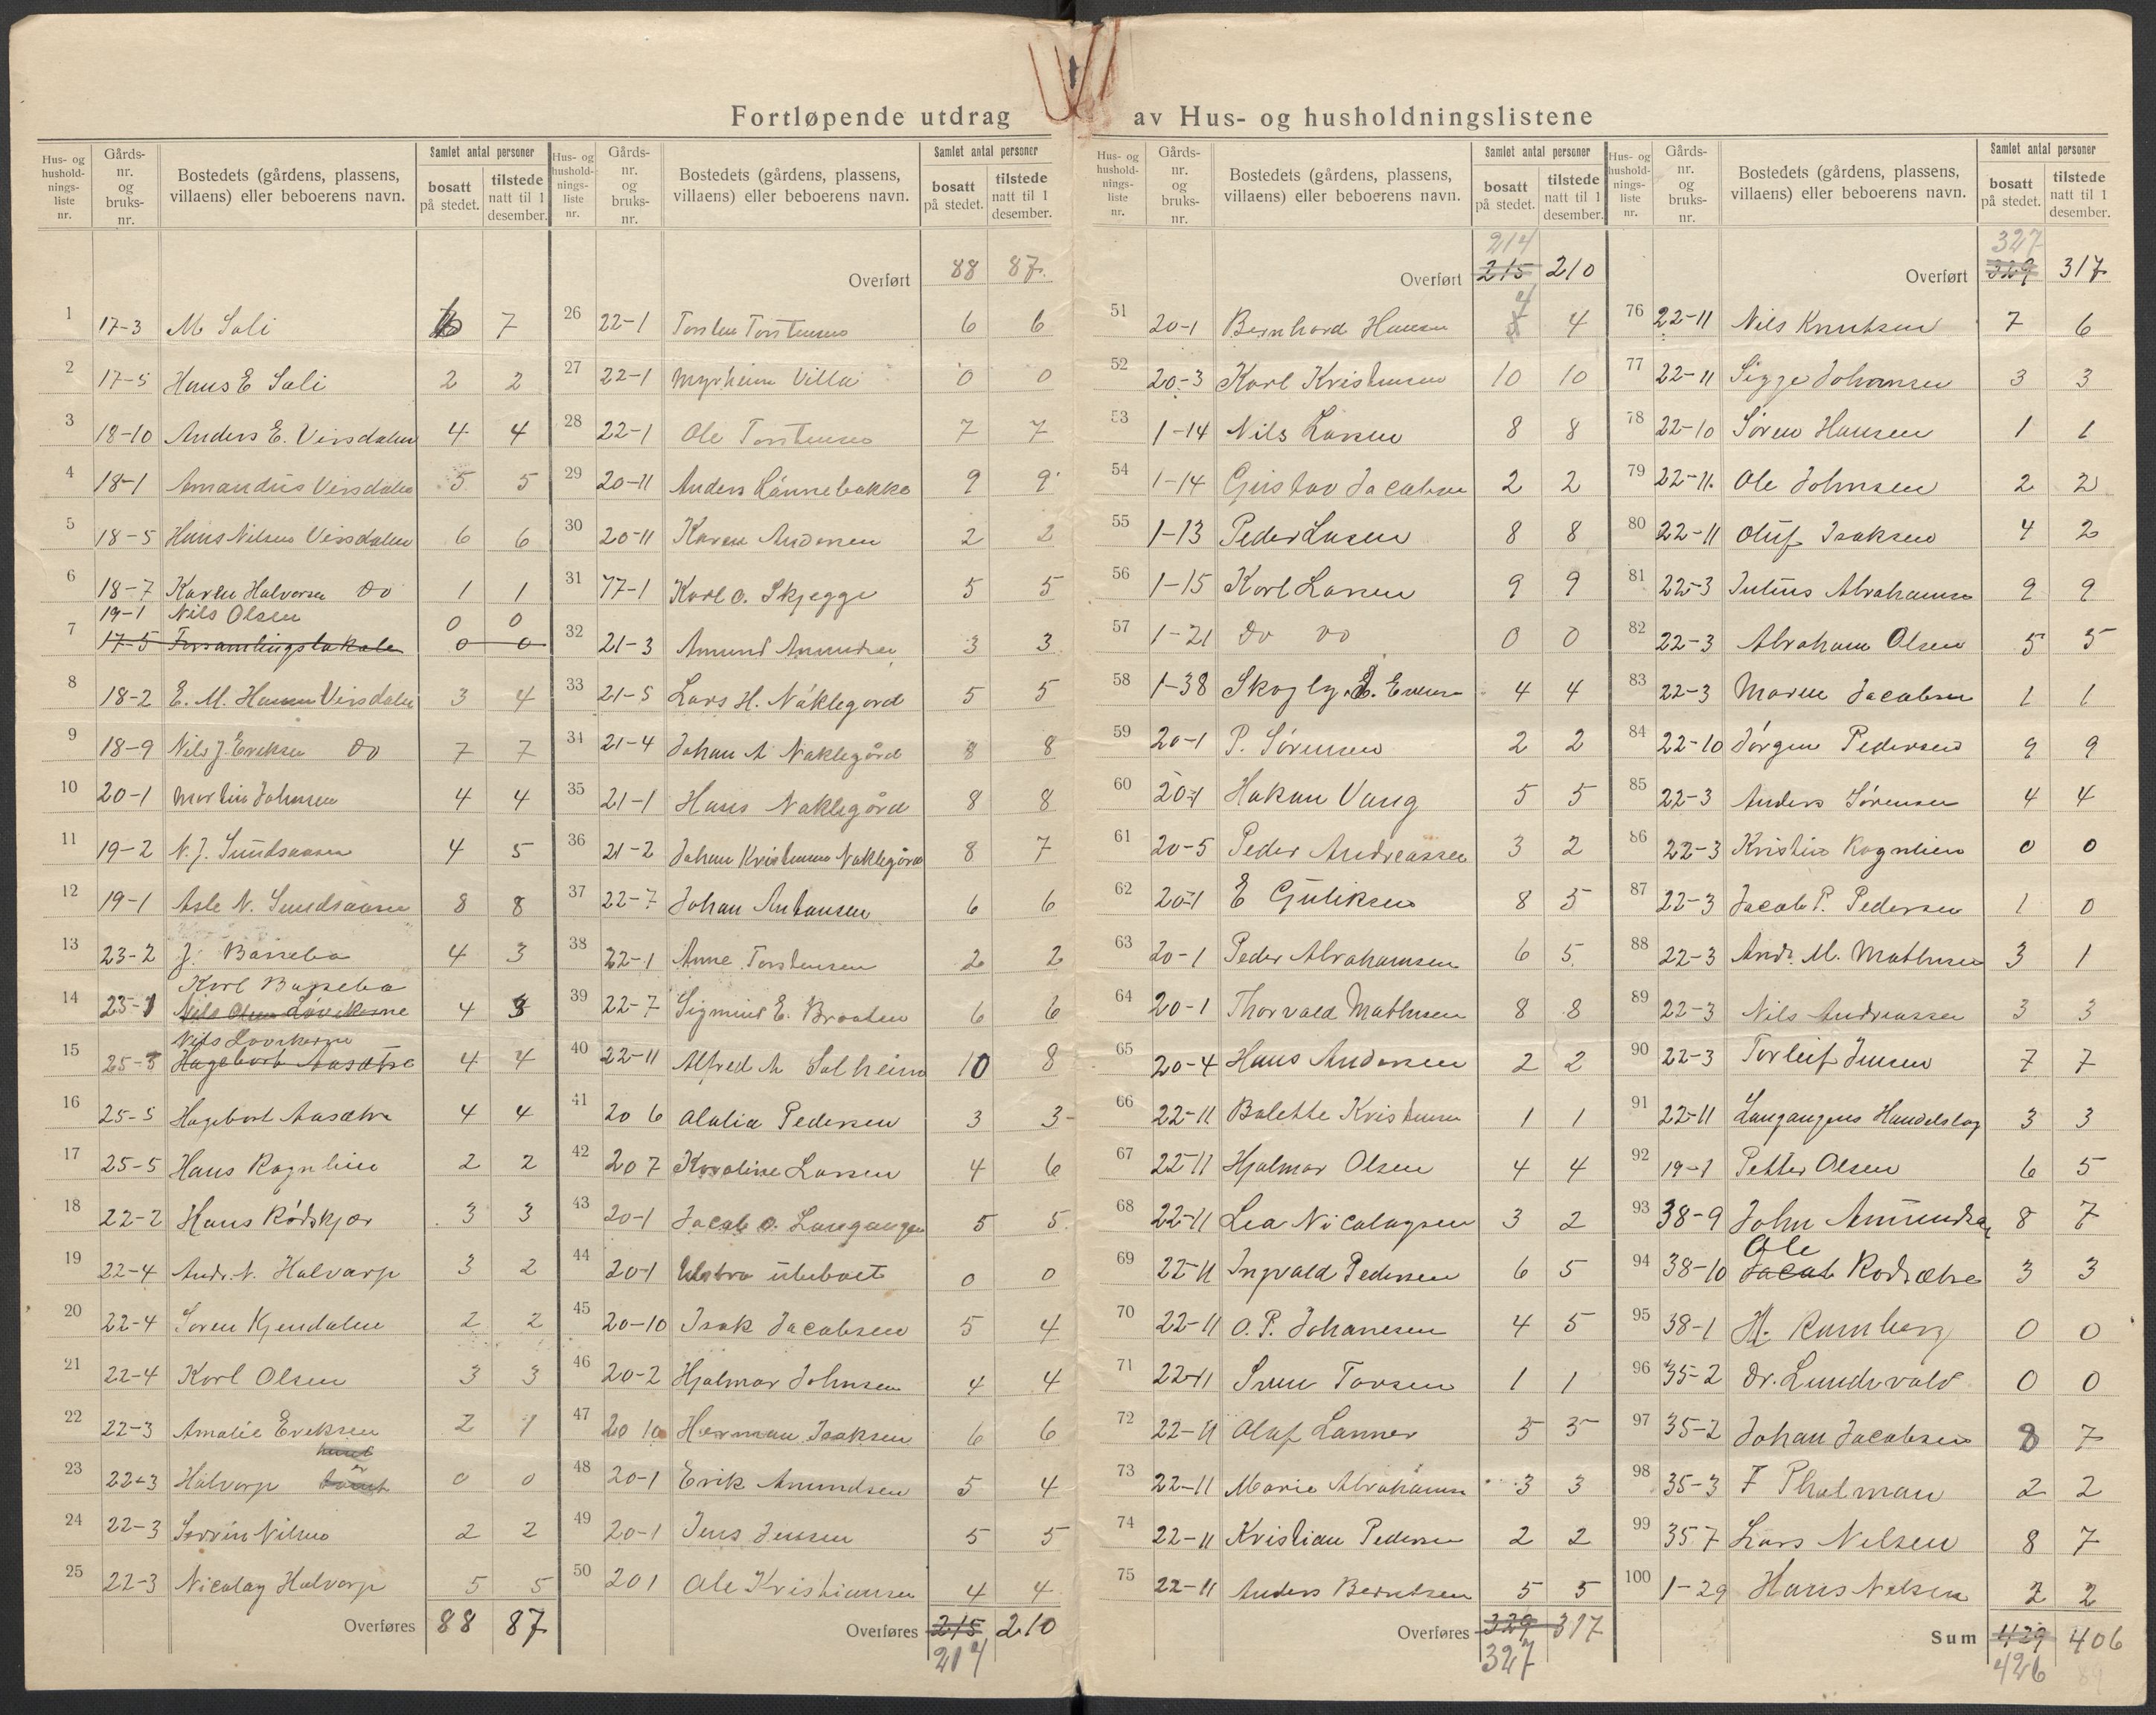 Fortløpende utdrag av Hus- og husholdningslistene
Hus- og husholdningsliste nr. Gårds-nr. og bruks-nr. Bostedets (gårdens, plassens, villaens) eller beboerens navn. Samlet antal personer bosatt på stedet. tilstede natt til 1 desember.
1 17-3 M Sali 7
2 17-5 Hans E Sali 2 2
3 18-10 Anders E. Virsdalen 4 4
4 18-1 Amandus Virsdalen 5 5
5 18-5 Hans Nilsen Virsdalen 6 6
6 18-7 Karen Halvorsen Do 1 1
19-1 Nils Olsen 0 0
7 17-5 Forsamlingslokale 0 0
8 18-2 E. M. Hansen Virsdalen 3 4
9 18-9 Nils J. Eriksen Do 7 7
10 20-1 Martin Johnsen 4 4
11 19-2 N. J. Sundsaasen 4 5
12 19-1 Asle N. Sundsaasen 8 8
13 23-2 J. Basseba 4 3
Karl Basseba
14 23-1 Nils Olsen Løvekerne 4 3
Nils Lovekerne
15 25-3 Hagebort Aasætre 4 4
16 25-5 Hagebort Aasætre 4 4
17 25-5 Hans Rognlien 2 2
18 22-2 Hans Rødskjær 3 3
19 22-4 Andr. N. Halvarp 3 2
20 22-4 Søren Kjendalen 2 2
21 22-4 Karl Olsen 3 3
22 22-3 Amalie Eriksen 2 1
23 22-3 Halvarp 0 0
24 22-3 Sørrin Nilsen 2 2
25 22-3 Nicolay Halvarp 5 5
Overføres 88 87
Hus- og husholdningsliste nr. Gårds-nr. og bruks-nr. Bostedets (gårdens, plassens, villaens) eller beboerens navn. Samlet antal personer bosatt på stedet. tilstede natt til 1 desember.
Overført 88 87
26 22-1 Torsten Torstensen 6 6
27 22-1 Myrheim Villa 0 0
28 22-1 Ole Torstensen 7 7
29 20-11 Anders Lønnebakke 9 9
30 20-11 Karen Andersen 2 2
31 77-1 Karl O. Skjegge 5 5
32 21-3 Amund Amundsen 3 3
33 21-5 Lars H. Naklegord 5 5
34 21-4 Johan A Naklegård 8 8
35 21-1 Hans Naklegård 8 8
36 21-2 Johan Kristensen Naklegård 8 7
37 22-7 Johan Antonsen 6 6
38 22-1 Anne Torstensen 2 2
39 22-7 Sigmund E. Braaten 6 6
40 22-11 Alfred A Solheim 10 8
41 20 6 Alalia Pedersen 3 3
42 20 7 Karoline Larsen 4 6
43 20-1 Jacob O. Langangen 5 5
44 20-1 ubeboet 0 0
45 20-10 Isak Jacobsen 5 4
46 20-2 Hjalmar Johnsen 4 4
47 20 10 Herman Isaksen 6 6
48 20-1 Erik Amundsen 5 4
49 20-1 Jens Jensen 5 5
50 20 1 Ole Kristiansen 4 4
Overføres 215 210
214
Hus- og husholdningsliste nr. Gårds-nr. og bruks-nr. Bostedets (gårdens, plassens, villaens) eller beboerens navn. Samlet antal personer bosatt på stedet. tilstede natt til 1 desember.
214
Overført 215 210
51 20-1 Bernhard Hansen 4 4
52 20-3 Karl Kristensen 10 10
53 1-14 Nils Larsen 8 8
54 1-14 Gustav Jacobsen 2 2
55 1-13 Peder Lasen 8 8
56 1-15 Karl Larsen 9 9
57 1-21 Do Do 0 0
58 1-38 Skogly. E. Evensen 4 4
59 20-1 P. Sørensen 2 2
60 20-1 Hakan Vang 5 5
61 20-5 Peder Andreassen 3 2
62 20-1 E Guliksen 8 5
63 20-1 Peder Abrahamsen 6 5
64 20-1 Thorvald Mathisen 8 8
65 20-4 Hans Andersen 2 2
66 22-11 Balette Kristensen 1 1
67 22-11 Hjalmar Olsen 4 4
68 22-11 Lea Nicolaysen 3 2
69 22-11 Ingvald Pedersen 6 5
70 22-11 O. P. Johanesen 4 5
71 22-11 Sven Torsen 1 1
72 22-11 Olaf Lanner 5 5
73 22-11 Marie Abrahamsen 3 3
74 22-11 Kristian Pedersen 2 2
75 22-11 Anders Berntsen 5 5
Overføres 329 317
327
Hus- og husholdningsliste nr. Gårds-nr. og bruks-nr. Bostedets (gårdens, plassens, villaens) eller beboerens navn. Samlet antal personer bosatt på stedet. tilstede natt til 1 desember.
327
Overført 329 317
76 22-11 Nils Knutsen 7 6
77 22-11 Sigge Johansen 3 3
78 22-10 Søren Hansen 1 1
79 22-11 Ole Johnsen 2 2
80 22-11 Oluf Isaksen 4 2
81 22-3 Julius Abrahamsen 9 9
82 22-3 Abraham Olsen 5 5
83 22-3 Maren Jacobsen 1 1
84 22-10 Jørgen Pedersen 9 9
85 22-3 Anders Sørensen 4 4
86 22-3 Kristin Rognlien 0 0
87 22-3 Jacob P. Pedersen 1 0
88 22-3 Andr. M. Mathisen 3 1
89 22-3 Nils Andreassen 3 3
90 22-3 Torleif Jensen 7 7
91 22-11 Langangens Handelslag 3 3
92 19-1 Petter Olsen 6 5
93 38-9 John Amundsen 8 7
Ole
94 38-10 Jacob Rodsætre 3 3
95 38-1 H. Ramberg 0 0
96 35-2 Dr. Lundevald 0 0
97 35-2 Johan Jacobsen 8 7
98 35-3 F Thalman 2 2
99 35 7 Lars Nelsen 8 7
100 1-29 Hans Nelsen 2 2
Sum 429 406
426 89